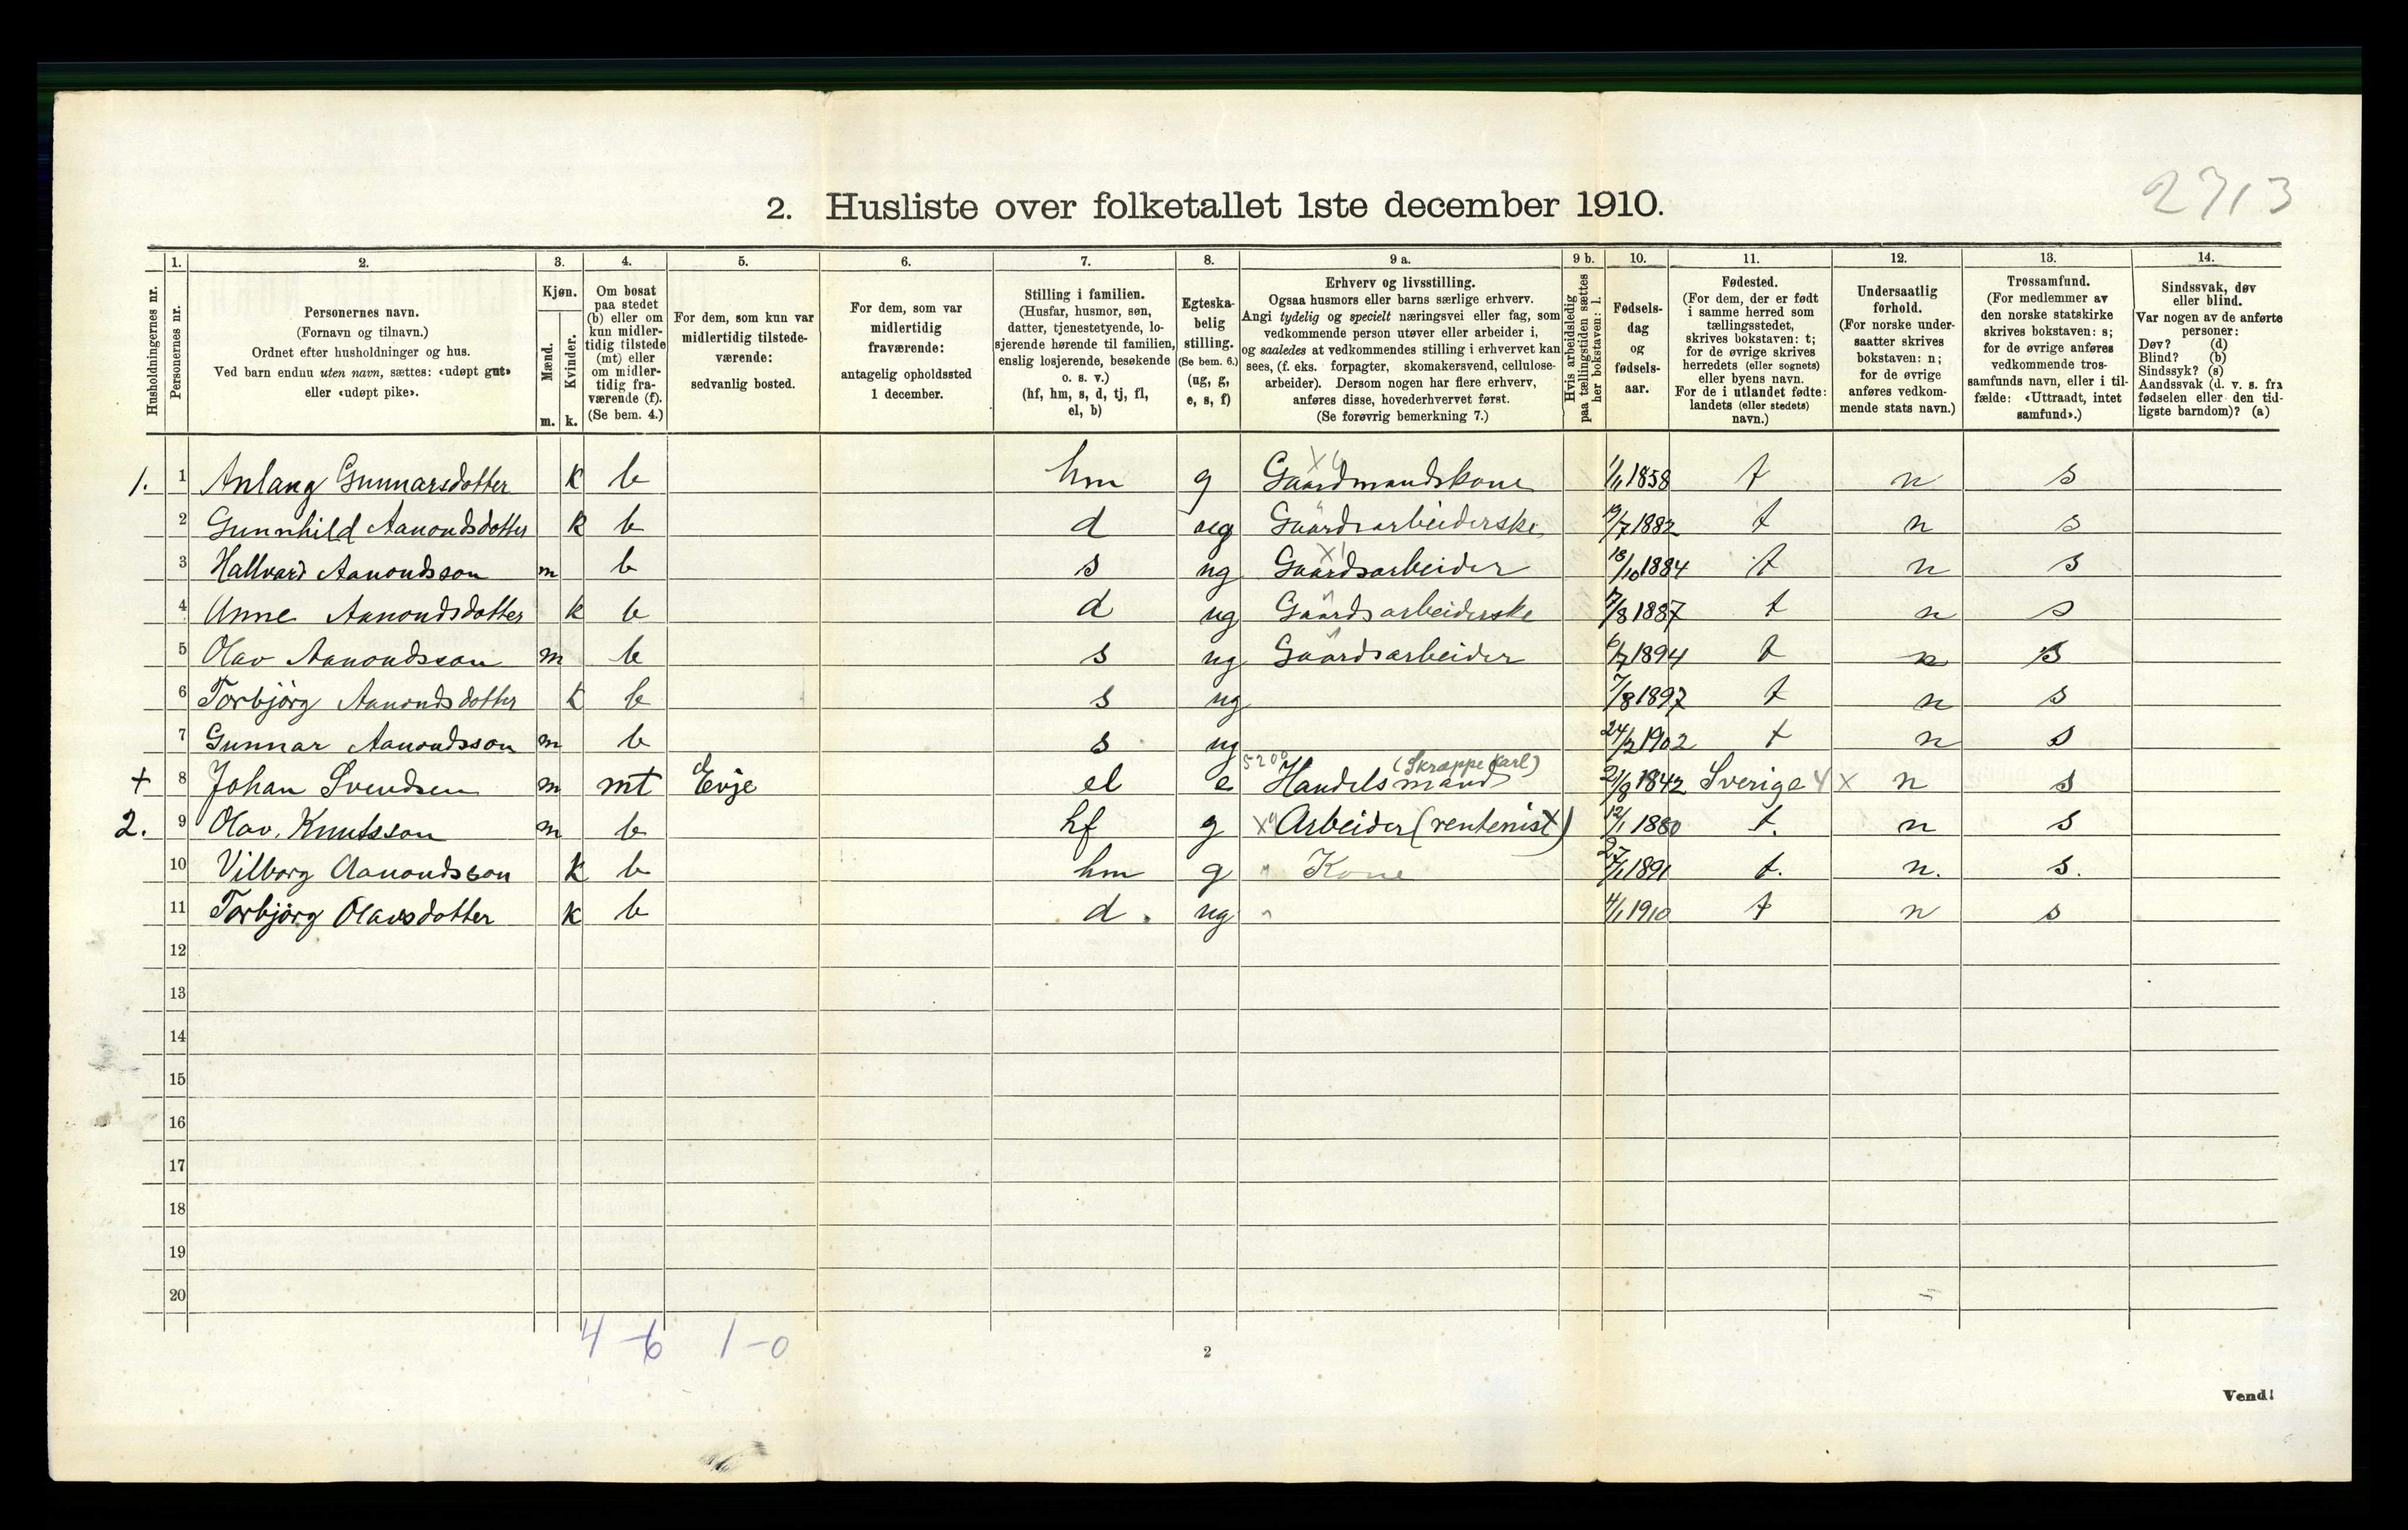 2713
2. Husliste over folketallet 1ste december 1910.
Husholdningernes nr.
1.
Personernes nr.
2.
Personernes navn.
(Fornavn og tilnavn.)
Ordnet efter husholdninger og hus.
Ved barn endnu uten navn, sættes: «udøpt gut»
eller «udøpt pike».
3.
Kjøn.
Mænd.
Kvinder.
m. k.
4.
Om bosat
paa stedet
(b) eller om
kun midler-
tidig tilstede
(mt) eller
om midler-
tidig fra-
værende (f).
(Se bem. 4.)
5.
For dem, som kun var
midlertidig tilstede-
værende:
sedvanlig bosted.
6.
For dem, som var
midlertidig
fraværende:
antagelig opholdssted
1 december.
7.
Stilling i familien.
(Husfar, husmor, søn,
datter, tjenestetyende, lo-
sjerende hørende til familien,
enslig losjerende, besøkende
o. s. v.)
(hf, hm, s, d, tj, fl,
el, b)
8.
Egteska-
belig
stilling.
(Se bem. 6.)
(ug, g,
e, s, f)
9 a.
Erhverv og livsstilling.
Ogsaa husmors eller barns særlige erhverv.
Angi tydelig og specielt næringsvei eller fag, som
vedkommende person utøver eller arbeider i,
og saaledes at vedkommendes stilling i erhvervet kan
sees, (f. eks. forpagter, skomakersvend, cellulose-
arbeider). Dersom nogen har flere erhverv,
anføres disse, hovederhvervet først.
(Se forøvrig bemerkning 7.)
9 b.
Hvis arbeidsledig
paa tællingstiden sættes
her bokstaven: l.
10.
Fødsels-
dag
og
fødsels-
aar.
11.
Fødested.
(For dem, der er født
i samme herred som
tællingsstedet,
skrives bokstaven: t;
for de øvrige skrives
herredets (eller sognets)
eller byens navn.
For de i utlandet fødte:
landets (eller stedets)
navn.)
12.
Undersaatlig
forhold.
(For norske under-
saatter skrives
bokstaven: n;
for de øvrige
anføres vedkom-
mende stats navn.)
13.
Trossamfund.
(For medlemmer av
den norske statskirke
skrives bokstaven: s;
for de øvrige anføres
vedkommende tros-
samfunds navn, eller i til-
fælde: «Uttraadt, intet
samfund».)
14.
Sindssvak, døv
eller blind.
Var nogen av de anførte
personer:
Døv? (d)
Blind? (b)
Sindssyk? (s)
Aandssvak (d. v. s. fra
fødselen eller den tid-
ligste barndom)? (a)
1. 1 Anlaug Gunnarsdotter k b hm g Gaardmandskone 1/1 1858 t n s
2 Gunnhild Aanondsdotter k b d ug Gaardsarbeiderske /7 1882 t n s
3 Hallvard Aanondsson m b s ug Gaardsarbeider 18/10 1884 t n s
4 Anne Aanondsdotter k b d ug Gaardsarbeiderske 7/8 1887 t n s
5 Olav Aanondsson m b s ug Gaardsarbeider 6/7 1894 t n s
6 Torbjörg Aanondsdotter k b s ug 7/8 1897 t n s
7 Gunnar Aanondsson m b s ug 24/2 1902 t n s
+ 8 Johan Svendsen m mt Evje el e 5200 Handelsmand (Skræppekarl) 21/8 1842 Sverige 4 x n s
2. 9 Olav Knutsson m b hf g Arbeider (rentenist) 12/1 1880 t. n s
10 Vilborg Aanondsson k b hm g " Kone 27/1 1891 t. n. s.
11 Torbjörg Olavsdotter k b d. ug " 4/1 1910 t n s
12
13
14
15
16
17
18
19
20
4-6 1-0
2
Vend!